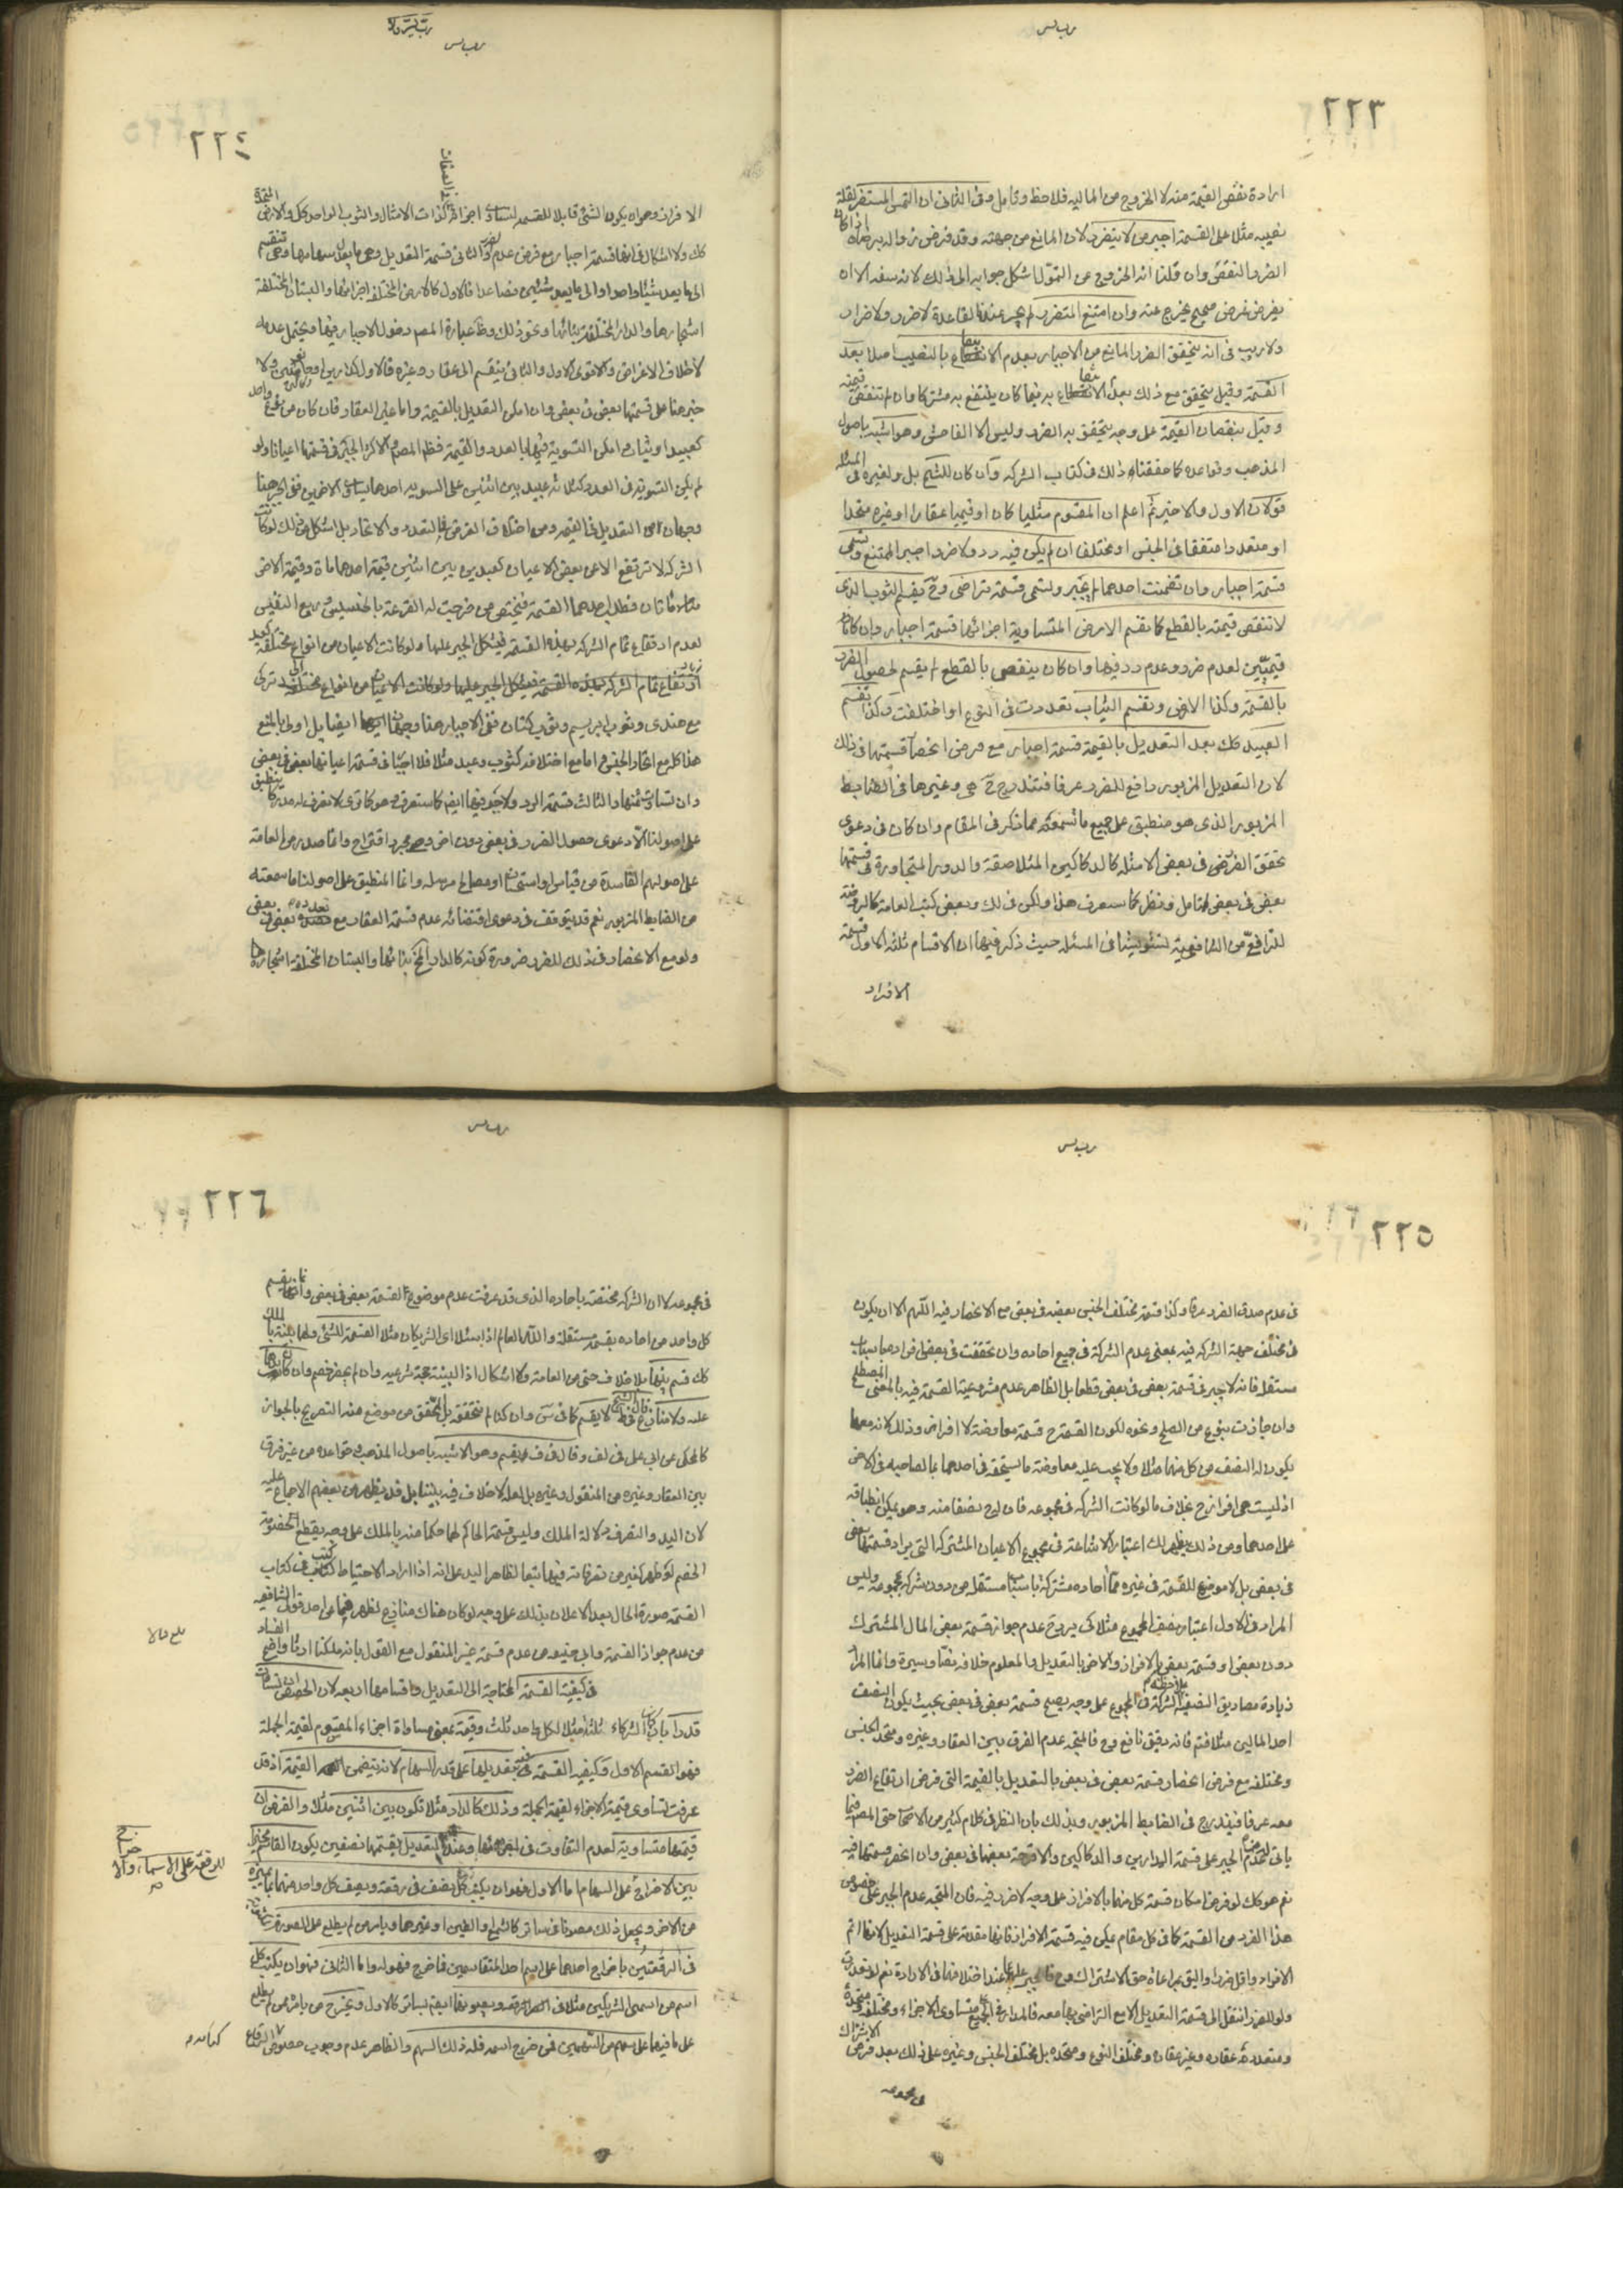 ٢٢٣
ارادة نقص القيمة منه لا الخروج من المالية فلاحظ وتامل وفى الثانى ان التمس المستضر لقلة
نصيبه مثلا على القسمة اجبر من لا يتضرر لان المانع من جهته وقد فرض زواله برضاه اذا كان
الضرر النقص وان قلنا انه الخروج عن التمول اشكل جوابه الى ذلك لانه سفه الا ان
يفرض غرض صحيح يخرج عنه وان امتنع المتضرر لم يجبر عندنا لقاعدة لا ضرر ولا ضرار
ولا ريب فى انه يتحقق الضرر المانع من الاجبار بعدم الانتفاع بالنصيب اصلا بعد
القسمة وقيل يتحقق مع ذلك بعدم الانتفاع به فيما كان ينتفع به مشتركا وان لم تنقص قيمته
وقيل بنقصان القيمة على وجه يتحقق به الضرر وليس الا الفاحش وهو اشبه باصول
المذهب وقواعده كما حققناه ذلك فى كتاب الشركة وان كان للشيخ بل ولغيره فى المسئلة
قولان الاول والاخير ثم اعلم ان المقسوم مثليا كان او قيميا عقارا او غيره متحدا
او متعددا متفقا فى الجنس او مختلفا ان لم يكن فيه رد ولا ضرر اجبر الممتنع وتسمى
قسمة اجبار وان تضمنت احدهما لم يجبر وتسمى قسمة تراضى وح يقسم الثوب الذى
لا تنقص قيمته بالقطع كما تقسم الارض المتساوية اجزائها قسمة اجبار وان كانا
قيميّين لعدم ضرر وعدم رد فيها وان كان ينقص بالقطع لم يقسم لحصول الضرر
بالقسمة وكذا الارض وتقسم الثياب تعددت فى النوع او اختلفت وكذا تقسم
العبيد كك بعد التعديل بالقيمة قسمة اجبار مع فرض انحصار قسمتها فى ذلك
لان التعديل المزبور رافع للضرر عرفا فتندرج ح هى وغيرها فى الضابط
المزبور الذى هو منطبق على جميع ما تسمعه مما ذكر فى المقام وان كان فى دعوى
تحقق الفرض فى بعض الامثلة كالدكاكين المتلاصقة والدور المتجاورة فى قسمتها
بعض فى بعض تامل ونظر كما ستعرف هذا ولكن فى لك وبعض كتب العامة كالروضة
للرافعى من الشافعية تشويشا فى المسئلة حيث ذكر فيها ان الاقسام ثلثة الاول قسمة
الافراز
٢٢٤
الافراز وهو ان يكون الشئ قابلا للقسمة لتساوى اجزائه كذات الامثال والثوب الواحد كك والارض المتحدة
كك ولا اشكال فى انها قسمة اجبار مع فرض عدم الضرر والثانى قسمة التعديل وهى ما يعدل سهامها وهى تنقسم
الى ما يعد شيئا واحدا والى ما يعد شيئين فصاعدا فالاول كالارض المختلفة اجزائها والبستان المختلفة
اشجارها والدار المختلفة بنائها ونحو ذلك وظ عبارة المصـ دخول الاجبار فيها ويحتمل عدمه
لاختلاف الاغراض والاقوى الاول والثانى ينقسم الى عقار وغيره فالاول
خبر هنا على قسمتها بعض فى بعض وان امكن التعديل بالقيمة واما غير العقار فان كان من نوع واحد
كعبيد او ثياب وامكن التسوية فيها بالعدد والقيمة فظ المصـ والاكثر الجبر فى قسمتها اعيانا ولو
لم يكن التسوية فى العدد كثلثة عبيد بين اثنين على السوية احدهما يساوى الاخرين ففى الجبر هنا
وجهان من التعديل فى القيمة ومن اختلاف الغرض فى التعدد والاتحاد بل اشكل من ذلك لو كانت
الشركة لا ترتفع الا عن بعض الاعيان كعبدين بين اثنين قيمة احدهما مائة وقيمة الاخر
مائتان فطلب احدهما القسمة فيختص من خرجت له القرعة بالخسيس وربع النفيس
لعدم ارتفاع تمام الشركة بهذه القسمة فيشكل الجبر عليها ولو كانت الاعيان من انواع مختلفة كعبد تركى
مع هندى وثوب ابريسم وثوب كتان ففى الاجبار هنا وجهان ايضا بل اولى بالمنع
هذا كله مع اتحاد الجنس اما مع اختلافه كثوب وعبد مثلا فلا اجبار فى قسمة اعيانها بعض فى بعض
وان تساوى ثمنها والثالث قسمة الرد ولا جبر فيها ايضا كما ستعرف وهو كما ترى لا نعرف له مدركا ينطبق
على اصولنا الا دعوى حصول الضرر فى بعض دون اخر وهو مجرد اقتراح وانما صدر من العامة
على اصولهم الفاسدة من قياس او استحسان او مصالح مرسلة وانما المنطبق على اصولنا ما سمعته
من الضابط المزبور نعم قد يتوقف فى دعوى اقتضائه عدم قسمة العقار مع تعدده بعض فى بعض
ولو مع الانحصار فى ذلك للضرر ضرورة كونه كالدار المختلفة بنائها والبستان المختلفة اشجارها
٢٢٥
فى عدم صدق الضرر عرفا وكذا قسمة مختلف الجنس بعضه فى بعض مع الانحصار فيه اللهم الا ان يكون
فى مختلف جهة الشركة فيه بمعنى عدم الشركة فى جميع احاده وان تحققت فى بعض افراده باسباب
مستقلة فانه لا جبر فى قسمة بعض فى بعض قطعا بل الظاهر عدم مشروعية القسمة فيه بالمعنى المصطلح
وان جازت بنوع من الصلح ونحوه لكون القسمة ح قسمة معاوضة لا افراز وذلك لانه معها
يكون له النصف من كل منهما مثلا ولا يجب عليه معاوضة ما يستحقه فى احدهما بما لصاحبه فى الاخر
اذ ليست هى افراز ح بخلاف ما لو كانت الشركة فى مجموعه فان له ح نصفا منه وهو يمكن انطباقه
على احدهما ومن ذلك يظهر لك اعتبار الاشاعة فى مجموع الاعيان المشتركة التى يراد قسمتها بعض
فى بعض بل لا موضع للقسمة فى غيره مما احاده مشتركة باسباب مستقلة من دون شركة بمجموعه وليس
المراد فى الاول اعتبار نصف المجموع مثلا كى يرد ح عدم جواز قسمة بعض المال المشترك
دون بعض او قسمة بعض بالافراز والاخر بالتعديل والمعلوم خلافه نصا وسيرة وانما المراد
زيادة مصاديق النصف بملاحظة الشركة فى المجموع على وجه يصح قسمة بعض فى بعض بحيث يكون النصف
احد المالين مثلا فتم فانه دقيق نافع وح فالمتجه عدم الفرق بين العقار وغيره ومتحد الجنس
ومختلفه مع فرض انحصار قسمة بعض فى بعض بالتعديل بالقيمة التى فرض ارتفاع الضرر
معه عرفا فيندرج فى الضابط المزبور وبذلك بان النظر فى كلام كثير من الاصحاب حتى المصنف فيما
ياتى من عدم الجبر على قسمة الدارين والدكاكين والاقرحة بعضها فى بعض وان انحصر قسمتها فيه
نعم هو كك لو فرض امكان قسمة كل منهما بالافراز على وجه لا ضرر فيه فان المتجه عدم الجبر على خصوص
هذا الفرد من القسمة كما فى كل مقام يمكن فيه قسمة الافراز فانها مقدمة على قسمة التعديل لانها اتم
الافراد واقل ضررا واليق بمراعاة حق الاشتراك فح فالجبر عليها عند اختلافهما فى الارادة نعم لو تعذرت
ولو للضرر انتقل الى قسمة التعديل الا مع التراضى بها معه فالمدار فى الجميع متساوى الاجزاء ومختلفه ومتحده
ومتعدده عقاره وغير عقاره ومختلف النوع ومتحده بل مختلف الجنس وغيره على ذلك بعد فرض الاشتراك
فى مجموعه
٢٢٦
فى مجموعه لا ان الشركة مختصة باحاده الذى قد عرفت عدم موضوع لقسمة بعض فى بعض وانما يقسم
كل واحد من احاده بقسمة مستقلة والله العالم اذا سئلا اى الشريكان مثلا القسمة للشئ ولهما بينة بالملك
كك قسم بينهما بلا خلاف حتى من العامة ولا اشكال اذ البينة حجة شرعية وان لم يحضر خصم وان كانت يدهما
عليه ولا منازع قال الشيخ فى ط لا يقسم كما فى س وان كنا لم نتحققه بل المحقق من موضع منه التصريح بالجواز
كالمحكى عن ابى على فى لف وقال فى ف يقسم وهو الاشبه باصول المذهب وقواعده من غير فرق
بين العقار وغيره من المنقول وغيره بل لعله لا خلاف فيه بيننا بل قد يظهر من بعضهم الاجماع عليه
لان اليد والتصرف دلالة الملك وليس قسمة الحاكم لها حكما منه بالملك على وجه يقطع خصومة
الخصم لو ظهر كغيره من تصرفاته فيها تبعا لظاهر اليد على انه اذا اراد الاحتياط كتب فى كتاب
القسمة صورة الحال بعد الاعلان بذلك على وجه لو كان هناك منازع لظهر فما عن احد قولى الشافعية
من عدم جواز القسمة وابى حنيفة من عدم قسمة غير المنقول مع القول بانه ملكنا ارثا واضح الفساد
فى كيفية القسمة المحتاجة الى التعديل واقسامها اربعة لان الحصص ان تساوت
قدرا بان كان الشركاء ثلثة مثلا لكل واحد ثلث وقيمة بمعنى مساواة اجزاء المقسوم لقيمة الجملة
فهو القسم الاول وكيفية القسمة فيه بتعديلها على قدر السهام لانه يتضمن القيمة اذ قد
عرفت تساوى قيمة الاجزاء لقيمة الجملة وذلك كالدار مثلا تكون بين اثنين مثلا والفرض ان
قيمتها متساوية لعدم التفاوت فى اجزائها وعند التعديل بقسمتها نصفين يكون القاسم مخيرا
بين الاخراج على السهام اما الاول فهو ان يكتب كل نصف فى رقعة ويصف كل واحد منهما بما يميزه
من الاخر ويجعل ذلك مصونا فى ساتر كالشمع او الطين او غيرهما ويامر من لم يطلع على الصورة
فى الرقعتين باخراج احدهما على اسم احد المتقاسمين فما خرج فهو له واما الثانى فهو ان يكتب كل
اسم من اسمى الشريكين مثلا فى رقعة ويصونهما ايضا بساتر كالاول ويخرج من يامره من لم يطلع
على ما فيهما على سهم من السهمين فمن خرج اسمه فله ذلك السهم والظاهر عدم وجوب خصوص الرقاع